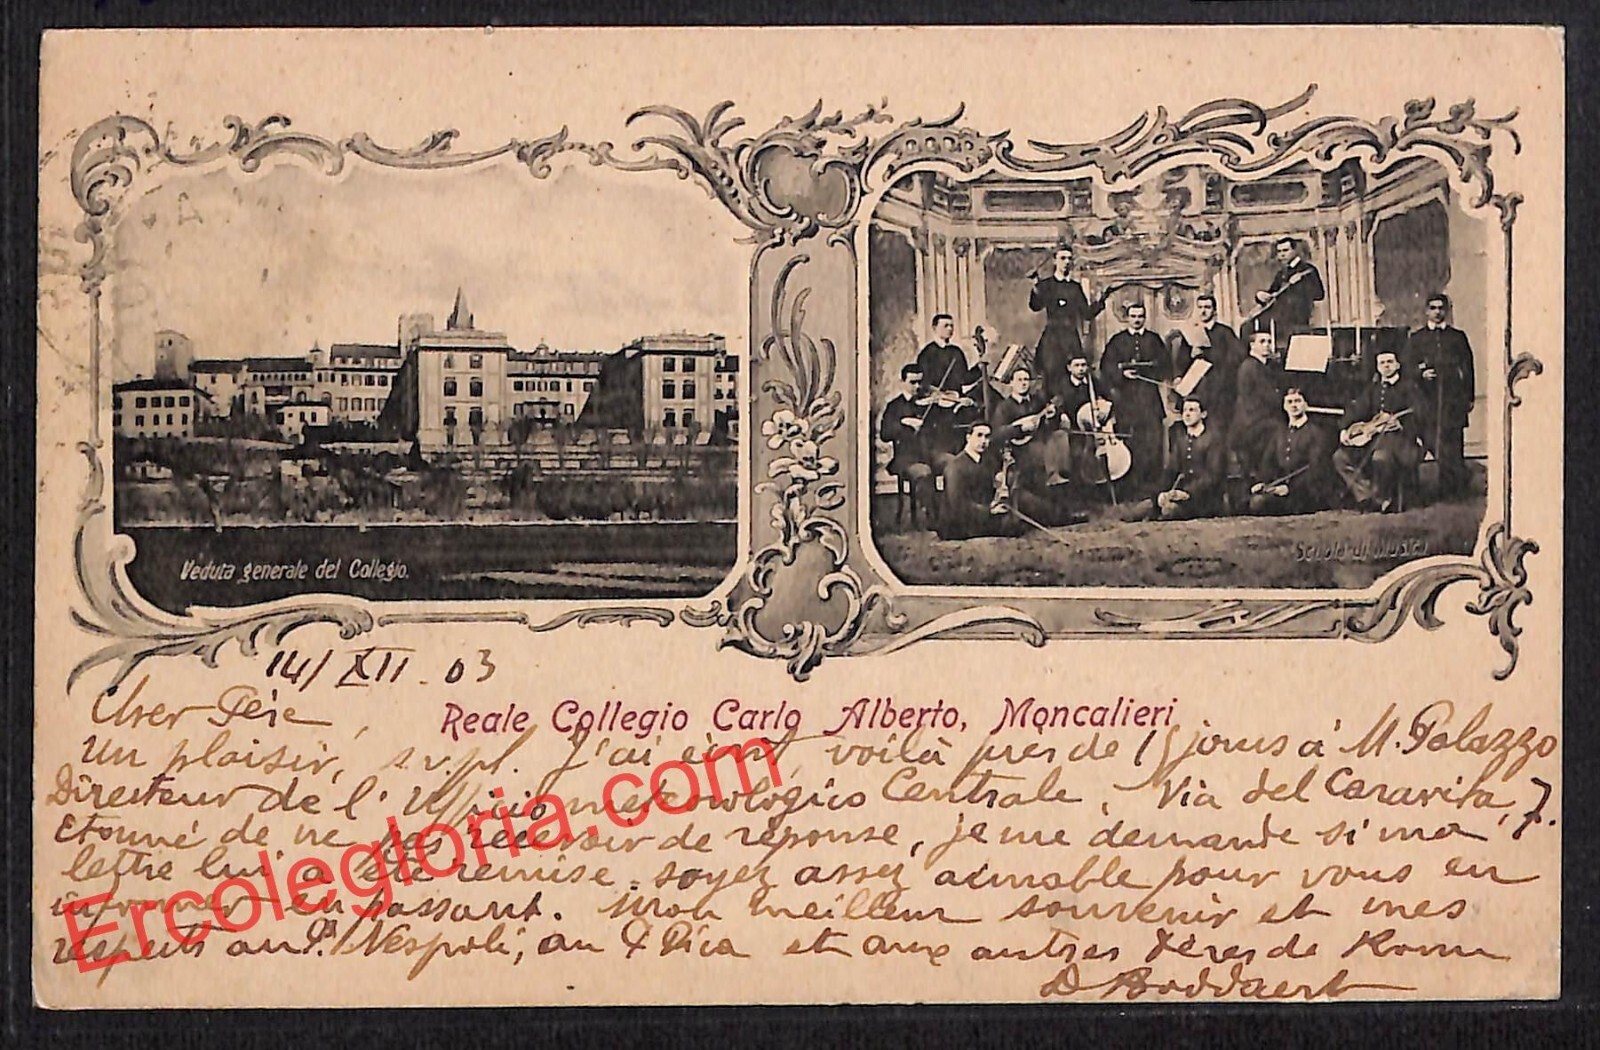 Veduta generale del Collegio.
Scuola di Musica
14/XII.03
Reale Collegio Carlo Alberto, Moncalieri
Cher Père,
Un plaisir, s.v.pl. J'ai écrit, voilà près de 15 jours à M. Palazzo
Directeur de l'Ufficio meteorologico Centrale, Via del Caravita, 7.
Etonné de ne pas recevoir de réponse, je me demande si ma
lettre lui a été remise. soyez assez aimable pour vous en
informer en passant. Mon meilleur souvenir et mes
respects au P. Nespoli, au P Pica et aux autres Pères de Rome
D Boddaert
Ercolegloria.com